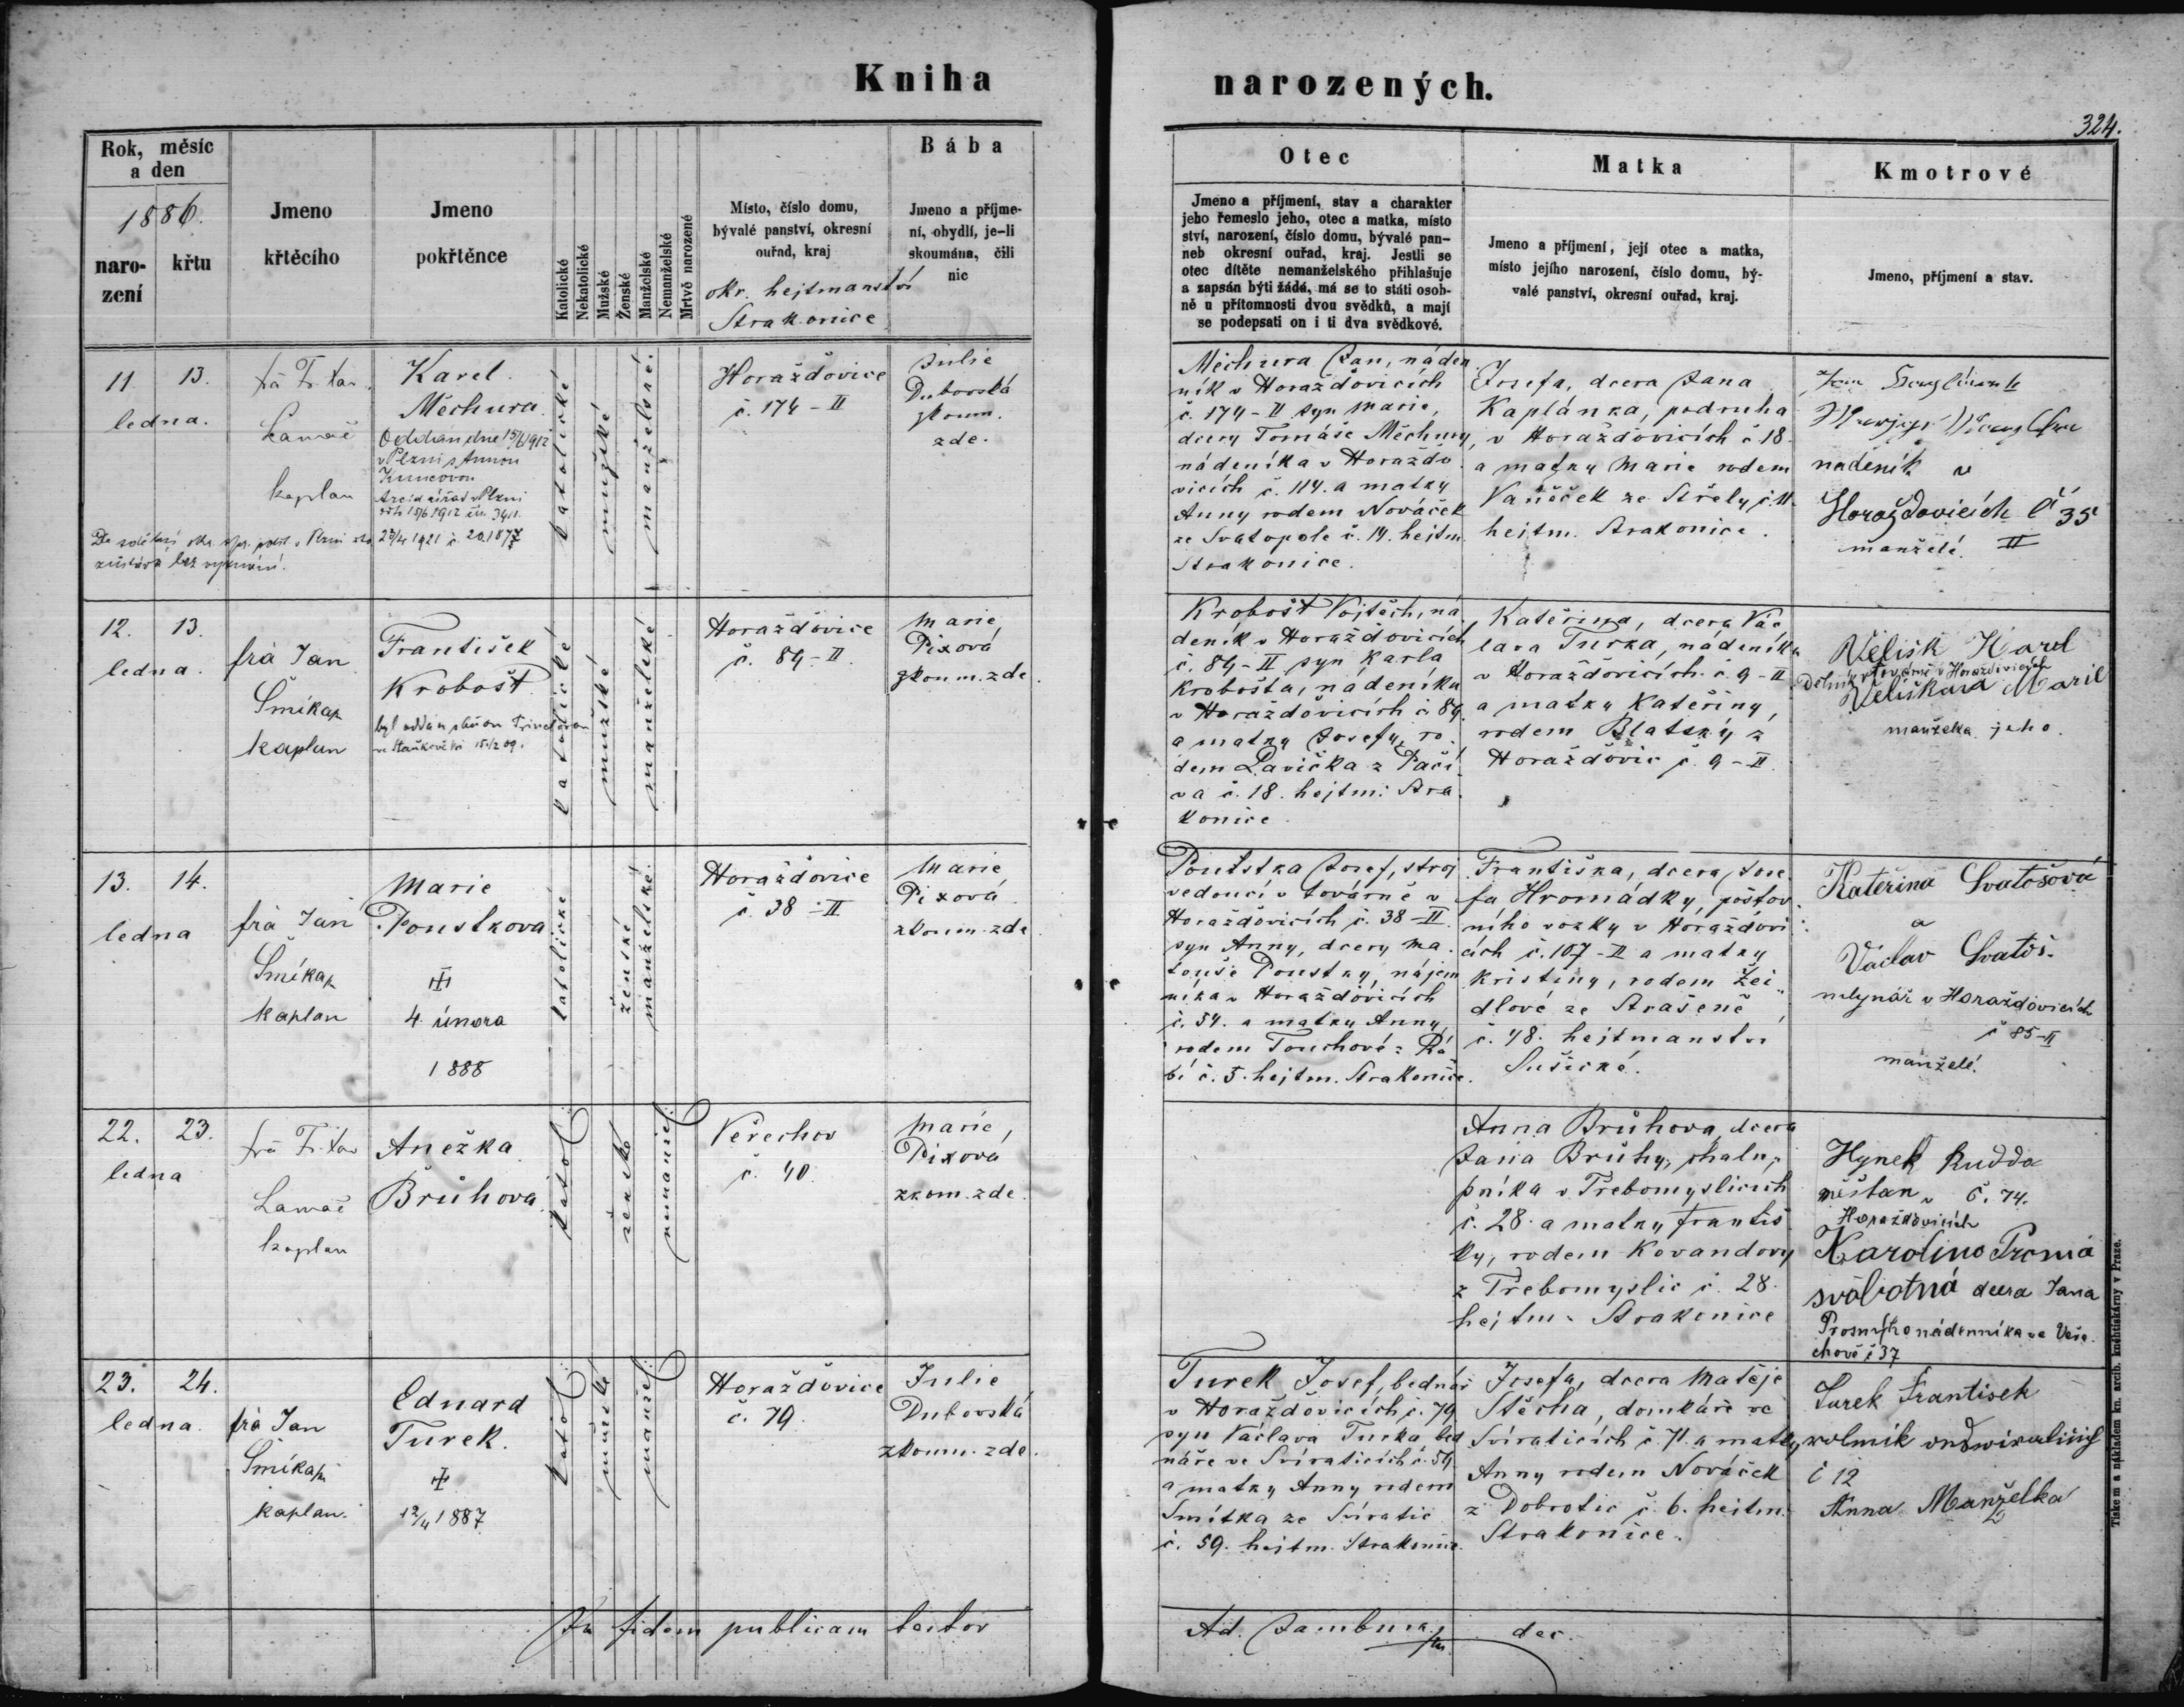 Kniha
narozených.
324.
Rok, měsíc
a den
1886.
naro-
zení
křtu
Jmeno
křtěcího
Jmeno
pokřtěnce
Katolické
Nekatolické
Mužské
Ženské
Manželské
Nemanželské
Mrtvě narozené
Místo, číslo domu,
bývalé panství, okresní
ouřad, kraj
okr. hejtmanství
Strakonice
Bába
Jmeno a příjme-
ní, obydlí, je-li
skoumána, čili
nic
Otec
Jmeno a příjmení, stav a charakter
jeho řemeslo jeho, otec a matka, místo
ství, narození, číslo domu, bývalé pan-
neb okresní ouřad, kraj. Jestli se
otec dítěte nemanželského přihlašuje
a zapsán býti žádá, má se to státi osob-
ně u přítomnosti dvou svědků, a mají
se podepsati on i ti dva svědkové.
Matka
Jmeno a příjmení, její otec a matka,
místo jejího narození, číslo domu, bý-
valé panství, okresní ouřad, kraj.
Kmotrové
Jmeno, příjmení a stav.
11. 13.
ledna.
kaplan
Karel
Měchura
Oddán dne 15/6 1912
v Plzni s Annou
23/4 1921 č. 201877
katolické
mužské
manželské.
Horažďovice
č. 174 - II
Julie
Dubovská
zkoum.
zde.
Měchura Jan, náden
ník v Horažďovicích
č. 174 - II syn Marie,
dcery Tomáše Měchury,
nádeníka v Horaždo
vicích č. 114. a matky
Anny rodem Nováček
ze Svatopole č. 14. hejtm.
Strakonice.
Josefa, dcera Jana
Kaplánka, podruha
v Horažďovicích č 18.
a matky Marie rodem
Vaněček ze Střely č. 11.
hejtm. Strakonice.
nádeník v
Horažďovicích č 35
manželé. II
12. 13.
ledna.
frà Jan
Šmíkap
kaplan
František
Krobošt
katolické
mužské
manželské
Horažďovice
č. 84 - II.
Marie,
Pixová
zkoum. zde.
Krobošt Vojtěch, ná
deník v Horažďovicích
č. 84 - II syn Karla
Krobošta, nádeníka
v Horažďovicích č 84.
a matky Josefy, ro
dem Lavička z Pačí
va č. 18. hejtm: Stra
konice.
Kateřina, dcera Vác
lava Turka, nádeníka
v Horažďovicích č. 9 - II
a matky Kateřiny,
rodem Blatský z
Horažďovic č. 9 - II.
Velišk Karel
Dělník v továrně v Horažďovicích
Velišková Marie
manželka jeho.
13. 14.
ledna
frà Jan
Šmíkap
kaplan
Marie
Poustková
4. února
1888
katolické
ženské
manželské.
Horažďovice
č. 38 - II
Marie,
Pixová
zkoum. zde
Poustka Josef, stroj
vedoucí v továrně v
Horažďovicích č. 38 - II.
syn Anny, dcery Ma
touše Poustky, nájem
níka v Horažďovicích
č. 54. a matky Anny,
rodem Touchové z Rá
bí č. 5. hejtm. Strakonice.
Františka, dcera Jose
fa Hromádky, poštov
ního vozky v Horažďovi
cích č. 107 - II a matky
Kristiny, rodem Žei
dlové ze Strašeně
č. 48. hejtmanství
Sušické.
Kateřina Svatošová
a
Vaclav Svatoš.
mlynář v Horažďovicích
č 85-II
manželé.
22. 23.
ledna
kaplan
Anežka
Brůhová
katol.
žensk.
nemanžel.
Veřechov
č. 40.
Marie,
Pixová
zkoum. zde.
Anna Brůhova, dcera
Jana Brůhy, chalu,
pníka v Třebomyslicích
č. 28. a matky Františ
ky, rodem Kovandovy
z Třebomyslic č. 28.
hejtm. Strakonice
Hynek Rudda
měštan v č. 74.
Horažďovicích
svobotná dcera Jana
nádenníka ve Veře
chově č 37
23. 24.
ledna.
frà Jan
Šmíkap
kaplan.
Eduard
Turek.
12/4 1887
katol.
mužské
manžel.
Horažďovice
č. 79.
Julie
Dubovská
zkoum. zde.
Turek Josef, bednář
v Horažďovicích č. 79
syn Václava Turka bed
náře ve Svíraticích č. 59
a matky Anny rodem
Smítka ze Svíratic
č. 59. hejtm. Strakonice.
Josefa, dcera Matěje
Stěcha, domkáře ve
Svíraticích č. 71. a matky
Anny rodem Nováček
z Dobrotic č. 6. hejtm.
Strakonice.
Turek František
rolník
č 12
Anna Manželka
In fidem publicam testor
Ad. Jambura, dec.
Tiskem a nákladem kn. arcib. knihtiskárny v Praze.